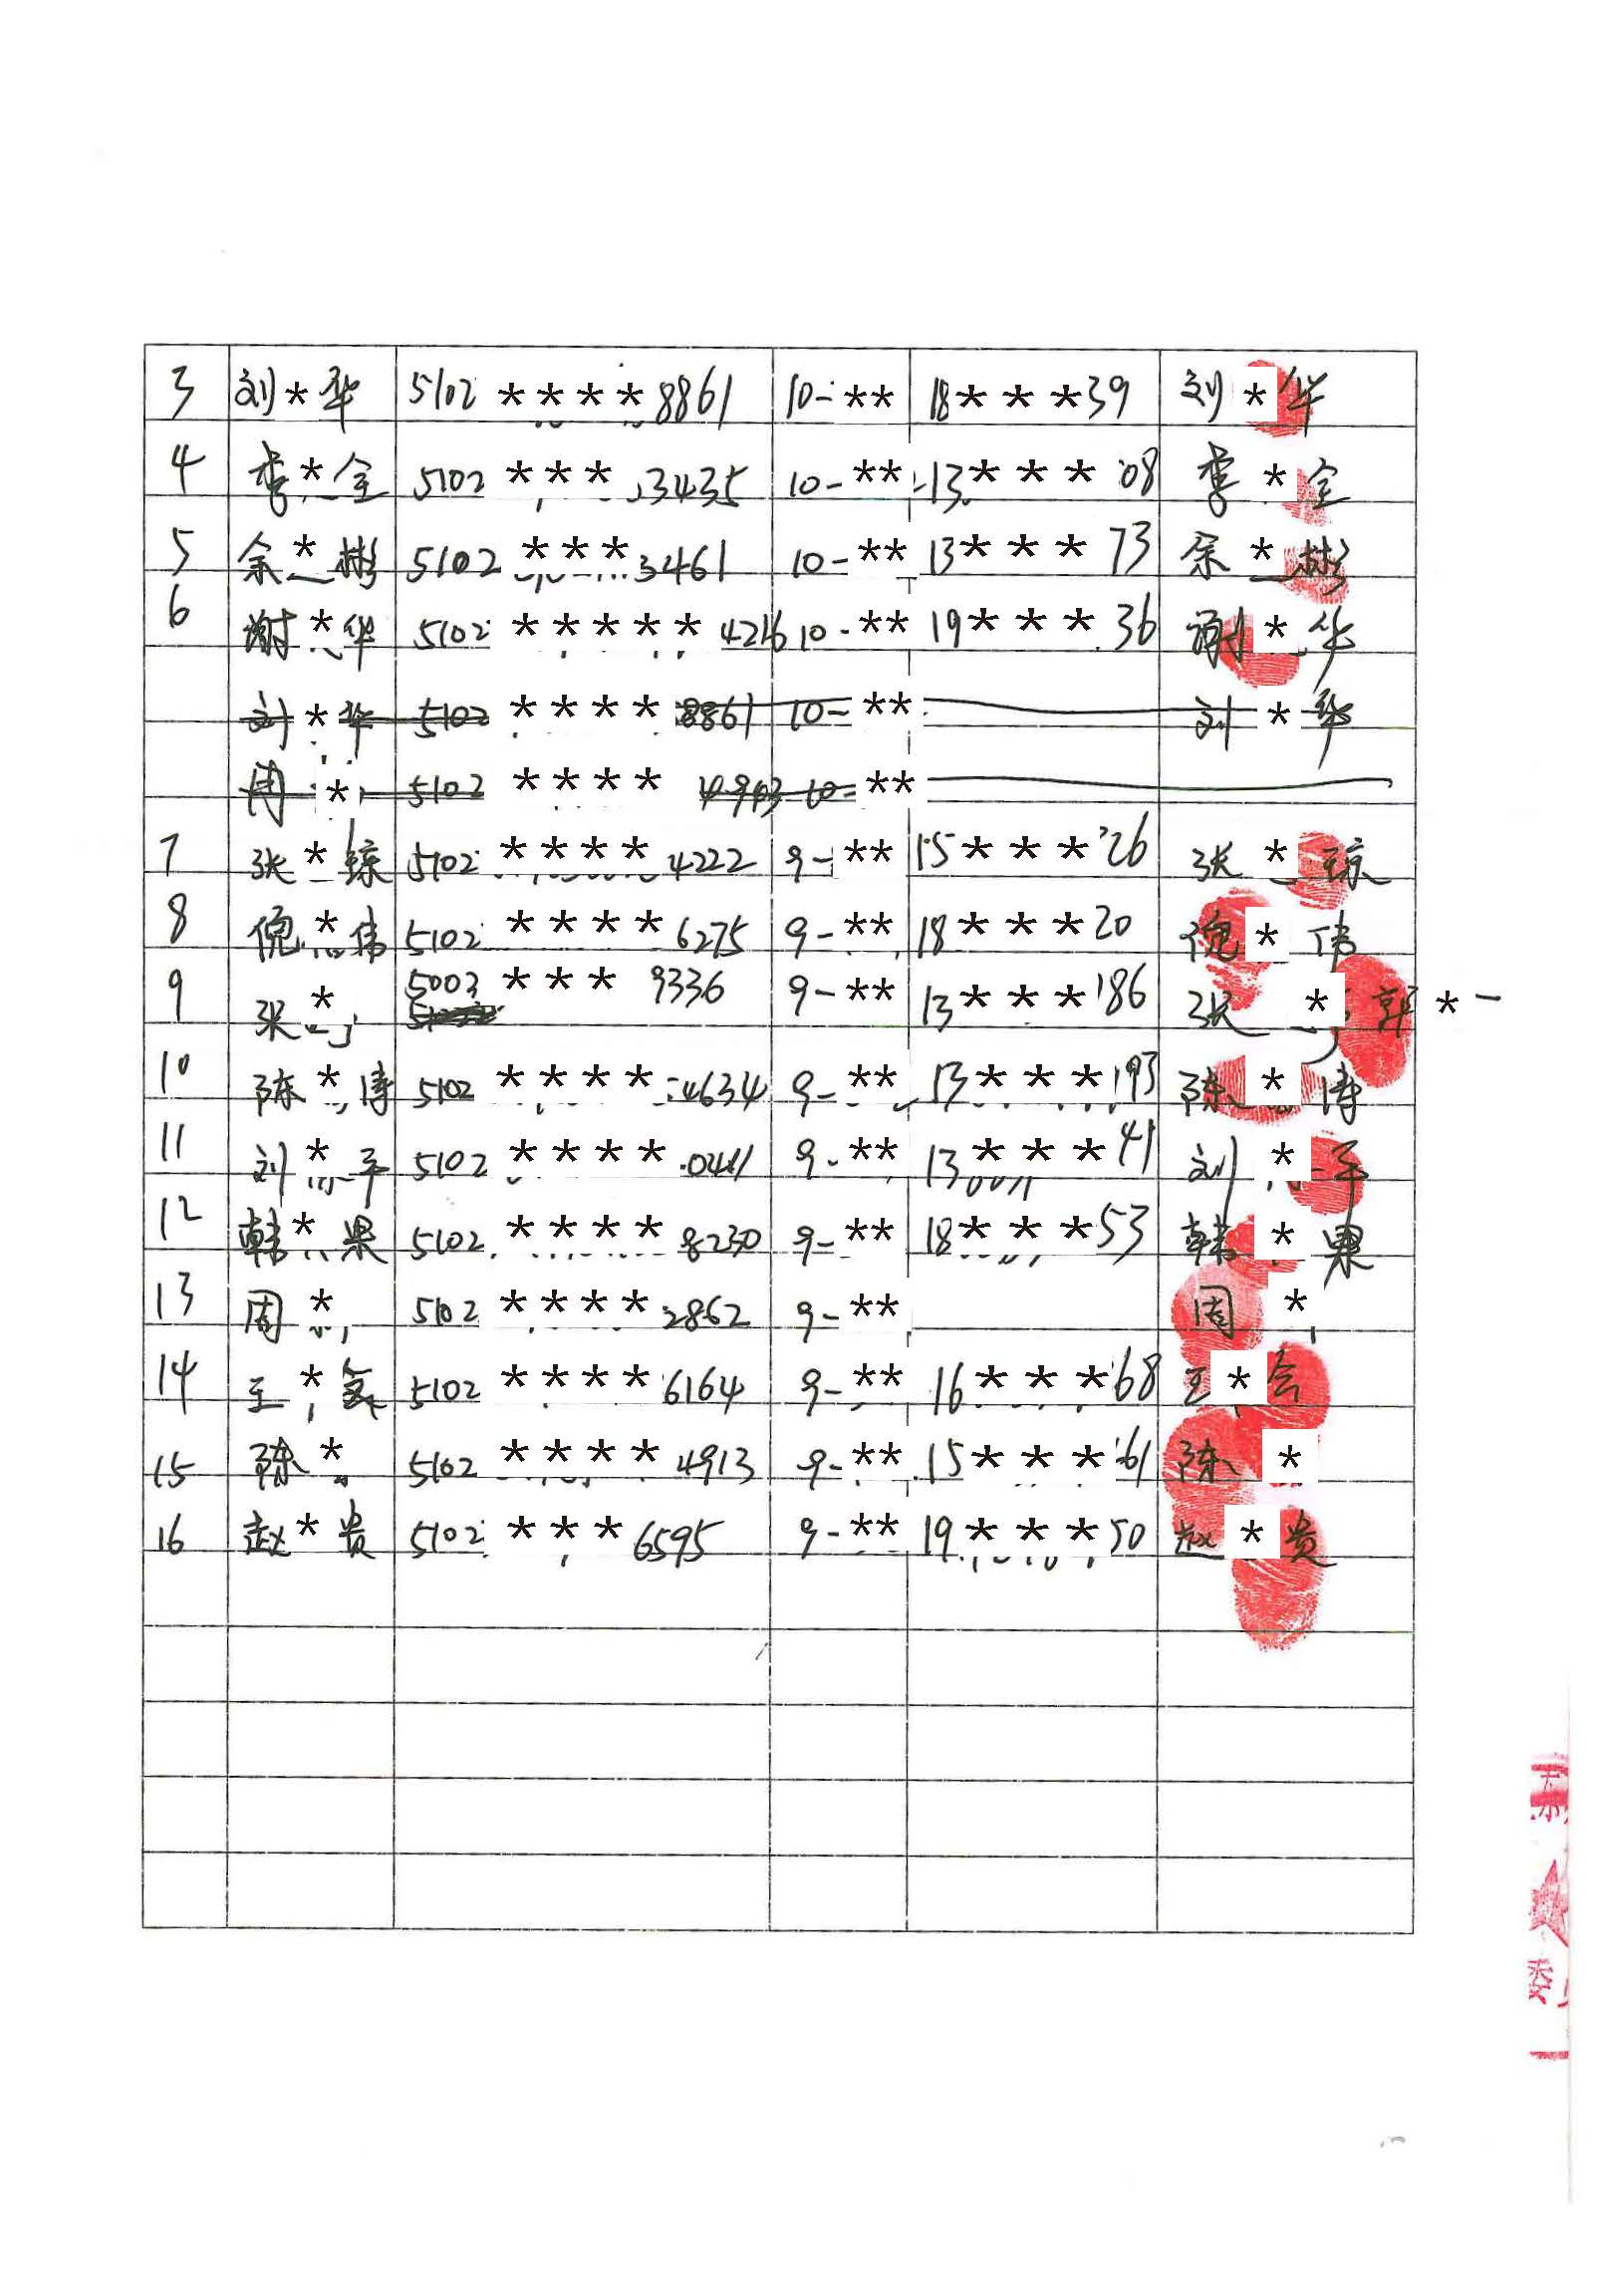 3 刘*华 5102 ****8861 10-** 18***39 刘*华
4 李*全 5102 ***3435 10-** 13***08 李*全
5 余*彬 5102 ***3461 10-** 13***73 余*彬
6 谢*华 5102 *****4216 10-** 19***36 谢*华
刘*华 5102 ****8861 10-** 刘*华
周* 5102 **** 10-**
7 张*琼 5102 ****4222 9-** 15***26 张*琼
8 倪*伟 5102 ****6275 9-** 18***20 倪*伟
9 张* 5003 ***9336 9-** 13***186 张* 郭*一
10 陈*涛 5102 ****4634 9-** 13***193 陈*涛
11 刘*平 5102 ****0411 9-** 13***41 刘*平
12 韩*果 5102 ****8230 9-** 18***53 韩*果
13 周* 5102 ****2862 9-** 周*
14 王* 5102 ****6164 9-** 16***68 王*会
15 陈* 5102 ****4913 9-** 15***61 陈*
16 赵*贵 5102 ***6595 9-** 19***50 赵*贵
委